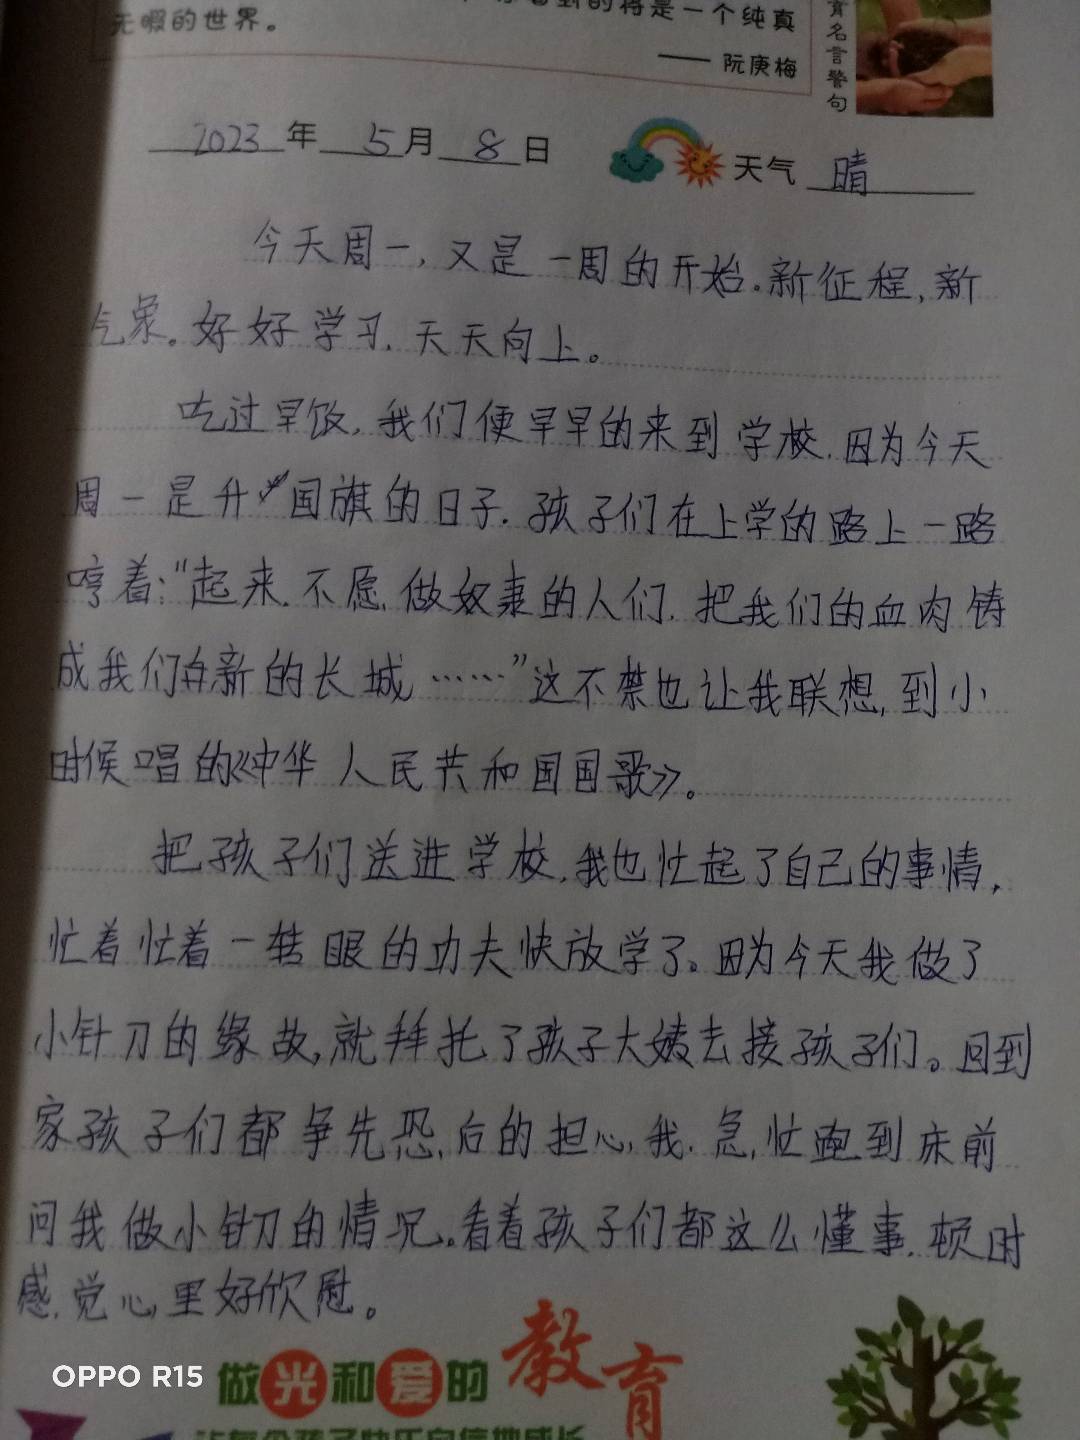 看到的将是一个纯真
无暇的世界。
—— 阮庚梅
育名言警句
2023年5月8日
天气 晴
今天周一,又是一周的开始。新征程,新
气象。好好学习,天天向上。
吃过早饭,我们便早早的来到学校,因为今天
周一是升国旗的日子.孩子们在上学的路上一路
哼着:"起来.不愿做奴隶的人们.把我们的血肉铸
成我们新的长城……"这不禁也让我联想,到小
时候唱的《中华人民共和国国歌》。
把孩子们送进学校,我也忙起了自己的事情,
忙着忙着一转眼的功夫快放学了。因为今天我做了
小针刀的缘故,就拜托了孩子大姨去接孩子们。回到
家孩子们都争先恐后的担心,我.急忙跑到床前
问我做小针刀的情况。看着孩子们都这么懂事.顿时
感觉心里好欣慰。
做光和爱的教育
OPPO R15